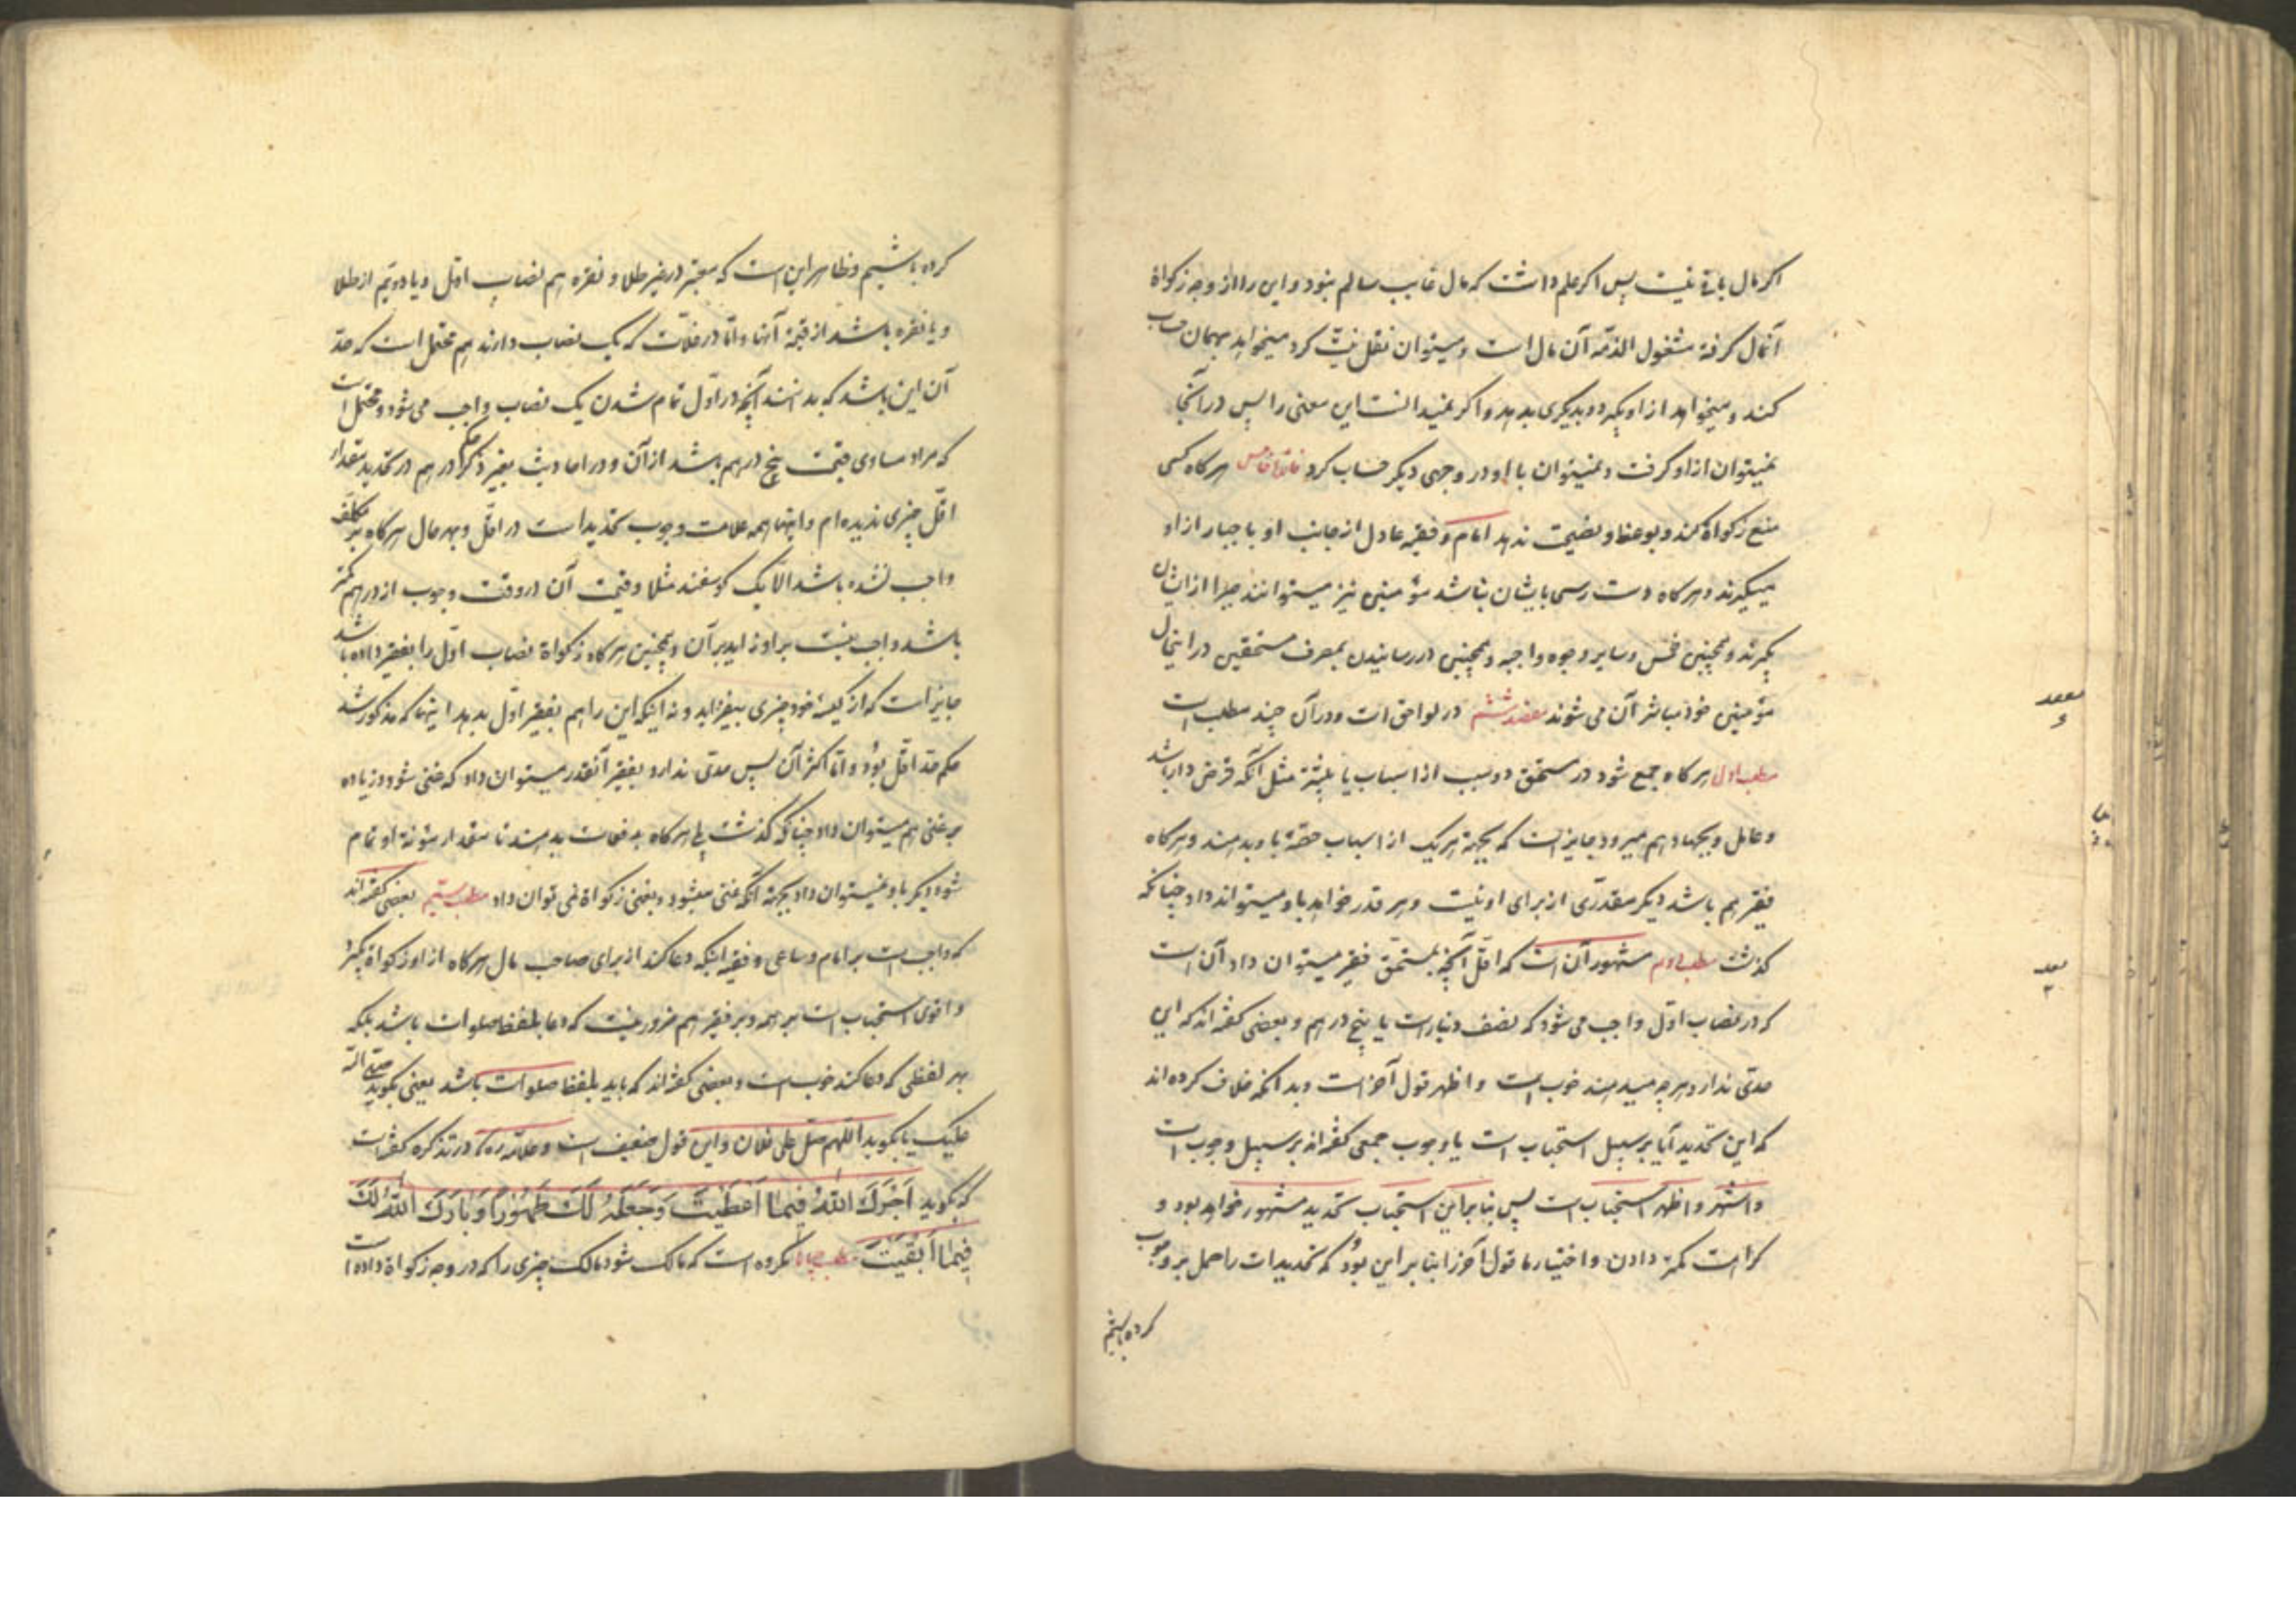 اکر مال باقی نیست پس اکر علم داشت که مال غایب سالم نبود و این را از وجه زکواة
آنمال کرفته مشغول الذمّه آن مال است و میتوان نقل نیّت کرد میخواهد بهمان حساب
کنند و میخواهد از او بکیرد و بدیکری بدهد و اکر نمیدانست این معنی را پس در آنجا
نمیتوان از او کرفت و نمیتوان با او در وجهی دیکر حساب کرد هر کاه کسی
منع زکواة کند و بوعظ و نصیحت ندهد امام و فقیه عادل از جانب او باجبار از او
میکیرند و هر کاه دست رسی بایشان نباشد مؤمنین نیز میتوانند جبرا از ایشان
بکیرند و همچنین خمس و سایر وجوه واجبه و همچنین در رسانیدن بمصرف مستحقین در اینحال
مؤمنین خود مباشر آن می شوند مقصد ششم در لواحق است و در آن چند مطلب است
مطلب اول هر کاه جمع شود در مستحق دو سبب از اسباب یا بیشتر مثل آنکه قرض دار باشد
و عامل و بجهاد هم میرود جایز است که بجهة هر یک از اسباب حصّهٔ باو بدهند و هر کاه
فقیر هم باشد دیکر مقدّری از برای او نیست و هر قدر خواهد باو میتواند داد چنانکه
کذشت مطلب دوم مشهور آن است که اقلّ آنچه بمستحق فقیر میتوان داد آن است
که در نصاب اوّل واجب می شود که نصف دینار است یا پنج درهم و بعضی کفته اند که این
حدّی ندارد هر چه میدهند خوب است و اظهر قول آخر است و بدانکه خلاف کرده اند
که این تحدید آیا بر سبیل استحباب است یا وجوب جمعی کفته اند بر سبیل وجوب است
و اشهر و اظهر استحباب است پس بنا بر این استحباب تحدید مشهور خواهد بود و
کراهت کمتر دادن و اختیار ما قول آخر را بنا بر این بوُد که تحدیدات را حمل بر وجوب
کرده باشیم
کرده باشیم و ظاهر این است که معتبر در غیر طلا و نقره هم نصاب اوّل و یا دویّم از طلا
و یا نقره باشد از قیمة آنها و امّا در غلّات که یک نصاب دارند هم محتمل است که حدّ
آن این باشد که بدهند آنچه در اوّل تمام شدن یک نصاب واجب می شود و محتمل است
که مراد مساوی قیمت پنج درهم باشد از آن و در احادیث بغیر ذکر درهم در تحدید مقدار
اقلّ چیزی ندیده ام و اینها همه علامت وجوب تحدید است در اقلّ و بهر حال هر کاه بر مکلّف
واجب نشده باشد الّا یک کوسفند مثلا و قیمت آن در وقت وجوب از درهم کمتر
باشد واجب نیست بر او زاید بر آن و همچنین هر کاه زکواة نصاب اوّل را بفقیر داده باشد
جایز است که از کیسهٔ خود چیزی بیفزاید و نه اینکه این را هم بفقیر اوّل بدهد اینها که مذکور شد
حکم حدّ اقلّ بوُد و امّا اکثر آن پس حدّی ندارد بفقیر آنقدر میتوان داد که غنی شود و زیاده
بر غنی هم میتوان داد چنانکه کذشت بلی هر کاه بدفعات بدهند تا مقدار مؤنهٔ او تمام
شود دیکر باو نمیتوان داد بجهة آنکه غنی میشود و بغنی زکواة نمی توان داد مطلب سیّم بعضی کفته اند
که واجب است بر امام و ساعی و فقیه اینکه دعا کند از برای صاحب مال هر کاه از او زکواة بکیرد
و اقوی استحباب است بر همه و بر فقیر هم ضرور نیست که دعا بلفظ صلوات باشد بلکه
بهر لفظی که دعا کند خوب است و بعضی کفته اند که باید بلفظ صلوات باشد یعنی بکوید صلّی الله
علیک یا بکوید اللهم صلّ علی فلان و این قول ضعیف است و علامه ره در تذکره کفته است
که بکوید اَجَرَکَ اللهُ فِیمٰا اَعْطَیْتَ وَجَعَلَهُ لَکَ طَهُوْرًا وَبَارَکَ اللهُ لَکَ
فِیْمٰا اَبْقَیْتَ مطلب چهارم مکروه است که مالک شود مالک چیزی را که در وجه زکواة داده است